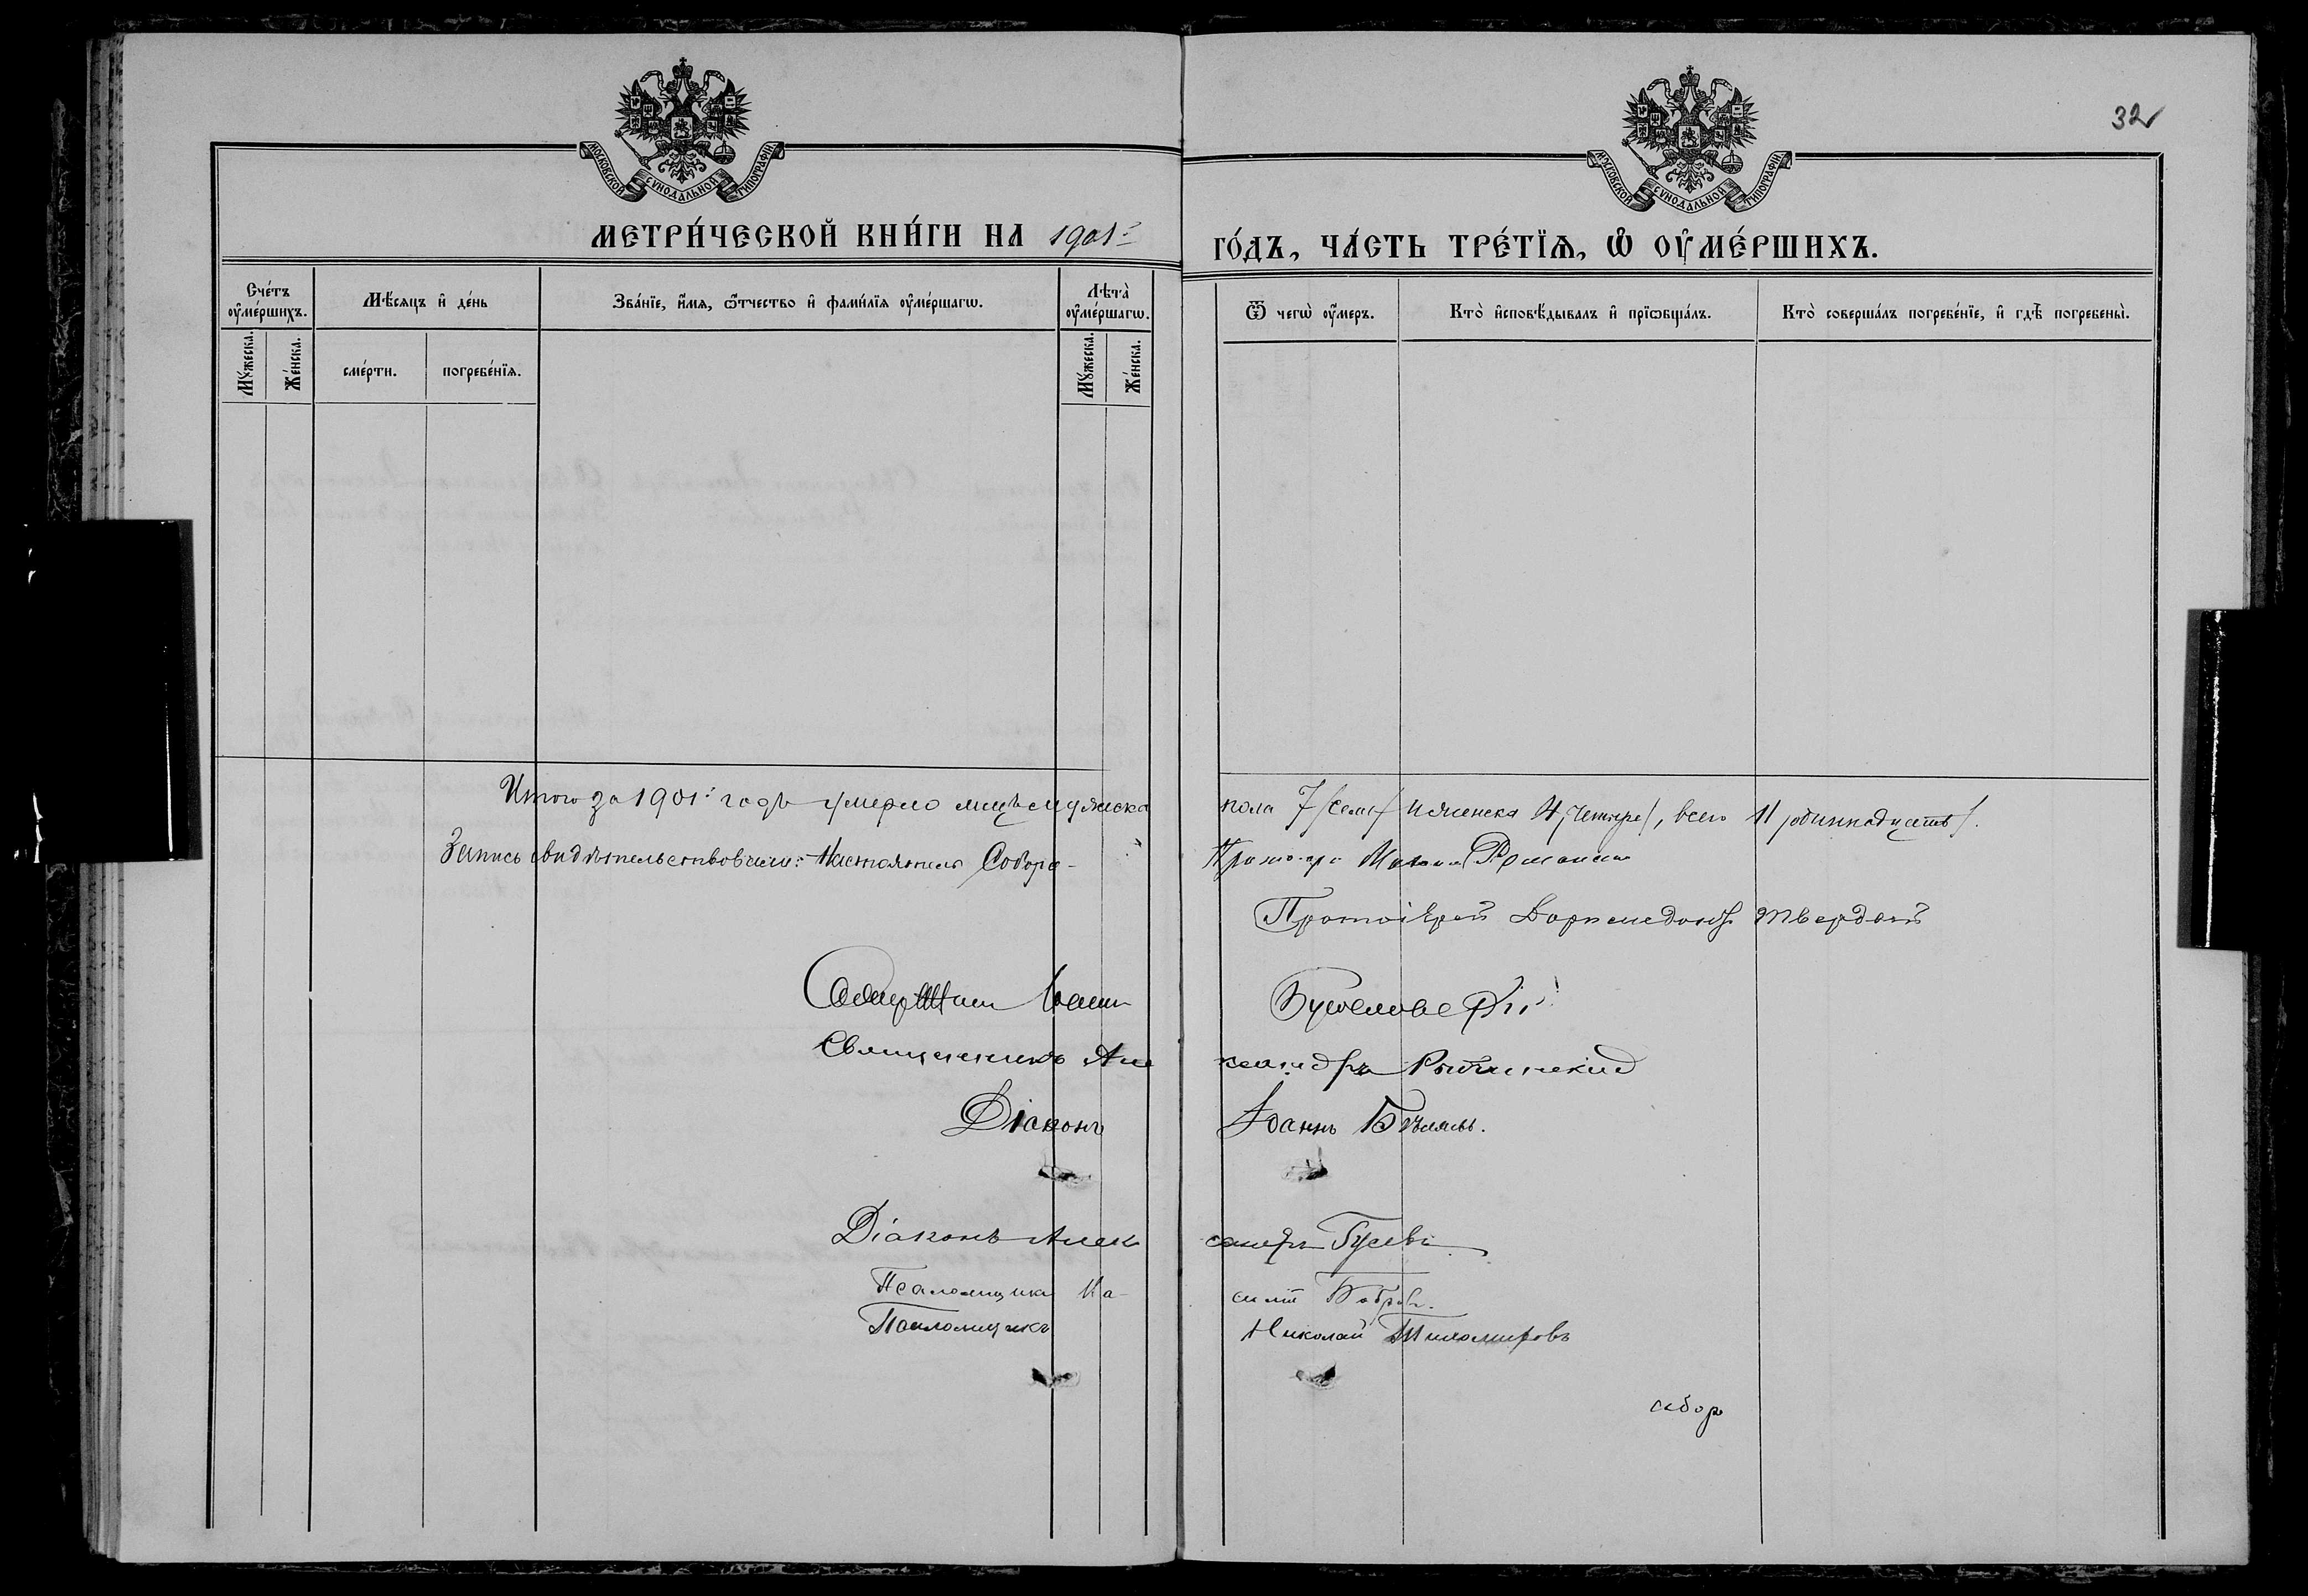 32
МОСКОВСКОЙ СѴНОДАЛЬНОЙ ТИПОГРАФІИ
МОСКОВСКОЙ СѴНОДАЛЬНОЙ ТИПОГРАФІИ
МЕТРИ́ЧЕСКОЙ КНИ́ГИ НА 1901 ГО́ДЪ, ЧА́СТЬ ТРЕ́ТЇѦ, Ѡ҆ ОУ҆МЕ́РШИХЪ.
Сче́тъ оу҆ме́ршихъ.
Мꙋ́жеска.
Же́нска.
Мѣ́сяцъ и҆ де́нь
сме́рти.
погребе́нїѧ.
Зва́нїе, и҆́мѧ, ѻ҆́тчество и҆ фами́лїѧ оу҆ме́ршагѡ.
Лѣ́та оу҆ме́ршагѡ.
Мꙋ́жеска.
Же́нска.
Ѿ чегѡ̀ оу҆́меръ.
Кто̀ и҆сповѣ́дывалъ и҆ прїѡбща́лъ.
Кто̀ соверша́лъ погребе́нїе, и҆ гдѣ̀ погребены̀.
Итого за 1901 годъ умерло лицъ мужска пола 7 /семь/ и женска 4 /четыре/, всего 11 /одиннадцать/.
Запись свидѣтельствовали: Настоятель Собора - Протоіерей
Протоіерей Твердой
Священникъ Александръ
Діаконъ Іоаннъ Бѣляевъ.
Діаконъ Александръ Гусевъ
Псаломщикъ Бобровъ.
Псаломщикъ Николай Тихомировъ